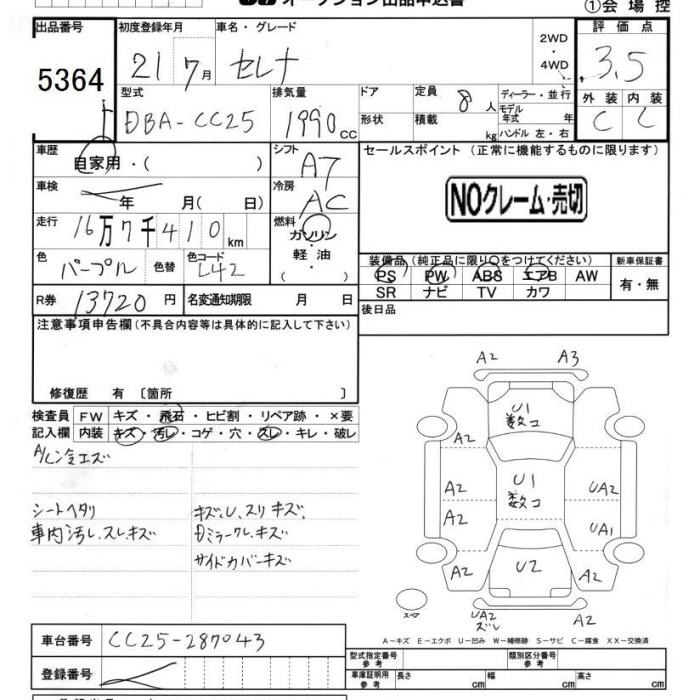 オークション出品申込書
①会場控
出品番号
5364
初度登録年月
21 7月
車名・グレード
セレナ
2WD
・
4WD
評価点
3.5
外装 内装
C C
型式
DBA-CC25
排気量
1990cc
ドア
形状
定員 8人
積載 kg
ディーラー・並行
モデル年式 年
ハンドル 左・右
車歴
自家用・( )
シフト
A7
セールスポイント (正常に機能するものに限ります)
NOクレーム・売切
車検
年 月( 日)
冷房
AC
走行
16万7千410km
燃料
ガソリン
・
軽油
・
( )
色
パープル
色替
色コード
L42
装備品 (純正品に限り○をつけてください)
PS PW ABS エアB AW
SR ナビ TV カワ
新車保証書
有・無
R券 13720円
名変通知期限 月 日
後日品
注意事項申告欄(不具合内容等は具体的に記入して下さい)
修復歴 有 〔箇所 〕
検査員記入欄
FW キズ・飛石・ヒビ割・リペア跡・×要
内装 キズ・汚レ・コゲ・穴・スレ・キレ・破レ
シートヘタリ
車内汚レ.スレ.キズ
キズ.U.スリキズ.
サイドカバーキズ
A2 A3
U1
数コ
A2
U1
数コ
A2 UA2
A2 UA1
A2 U2 A2
スペア
UA2
ズレ
A2
A-キズ E-エクボ U-凹み W-補修跡 S-サビ C-腐食 XX-交換済
車台番号 CC25-287043
登録番号
型式指定番号
参考
類別区分番号
参考
車庫証明用
参考
長さ cm 幅 cm 高さ cm